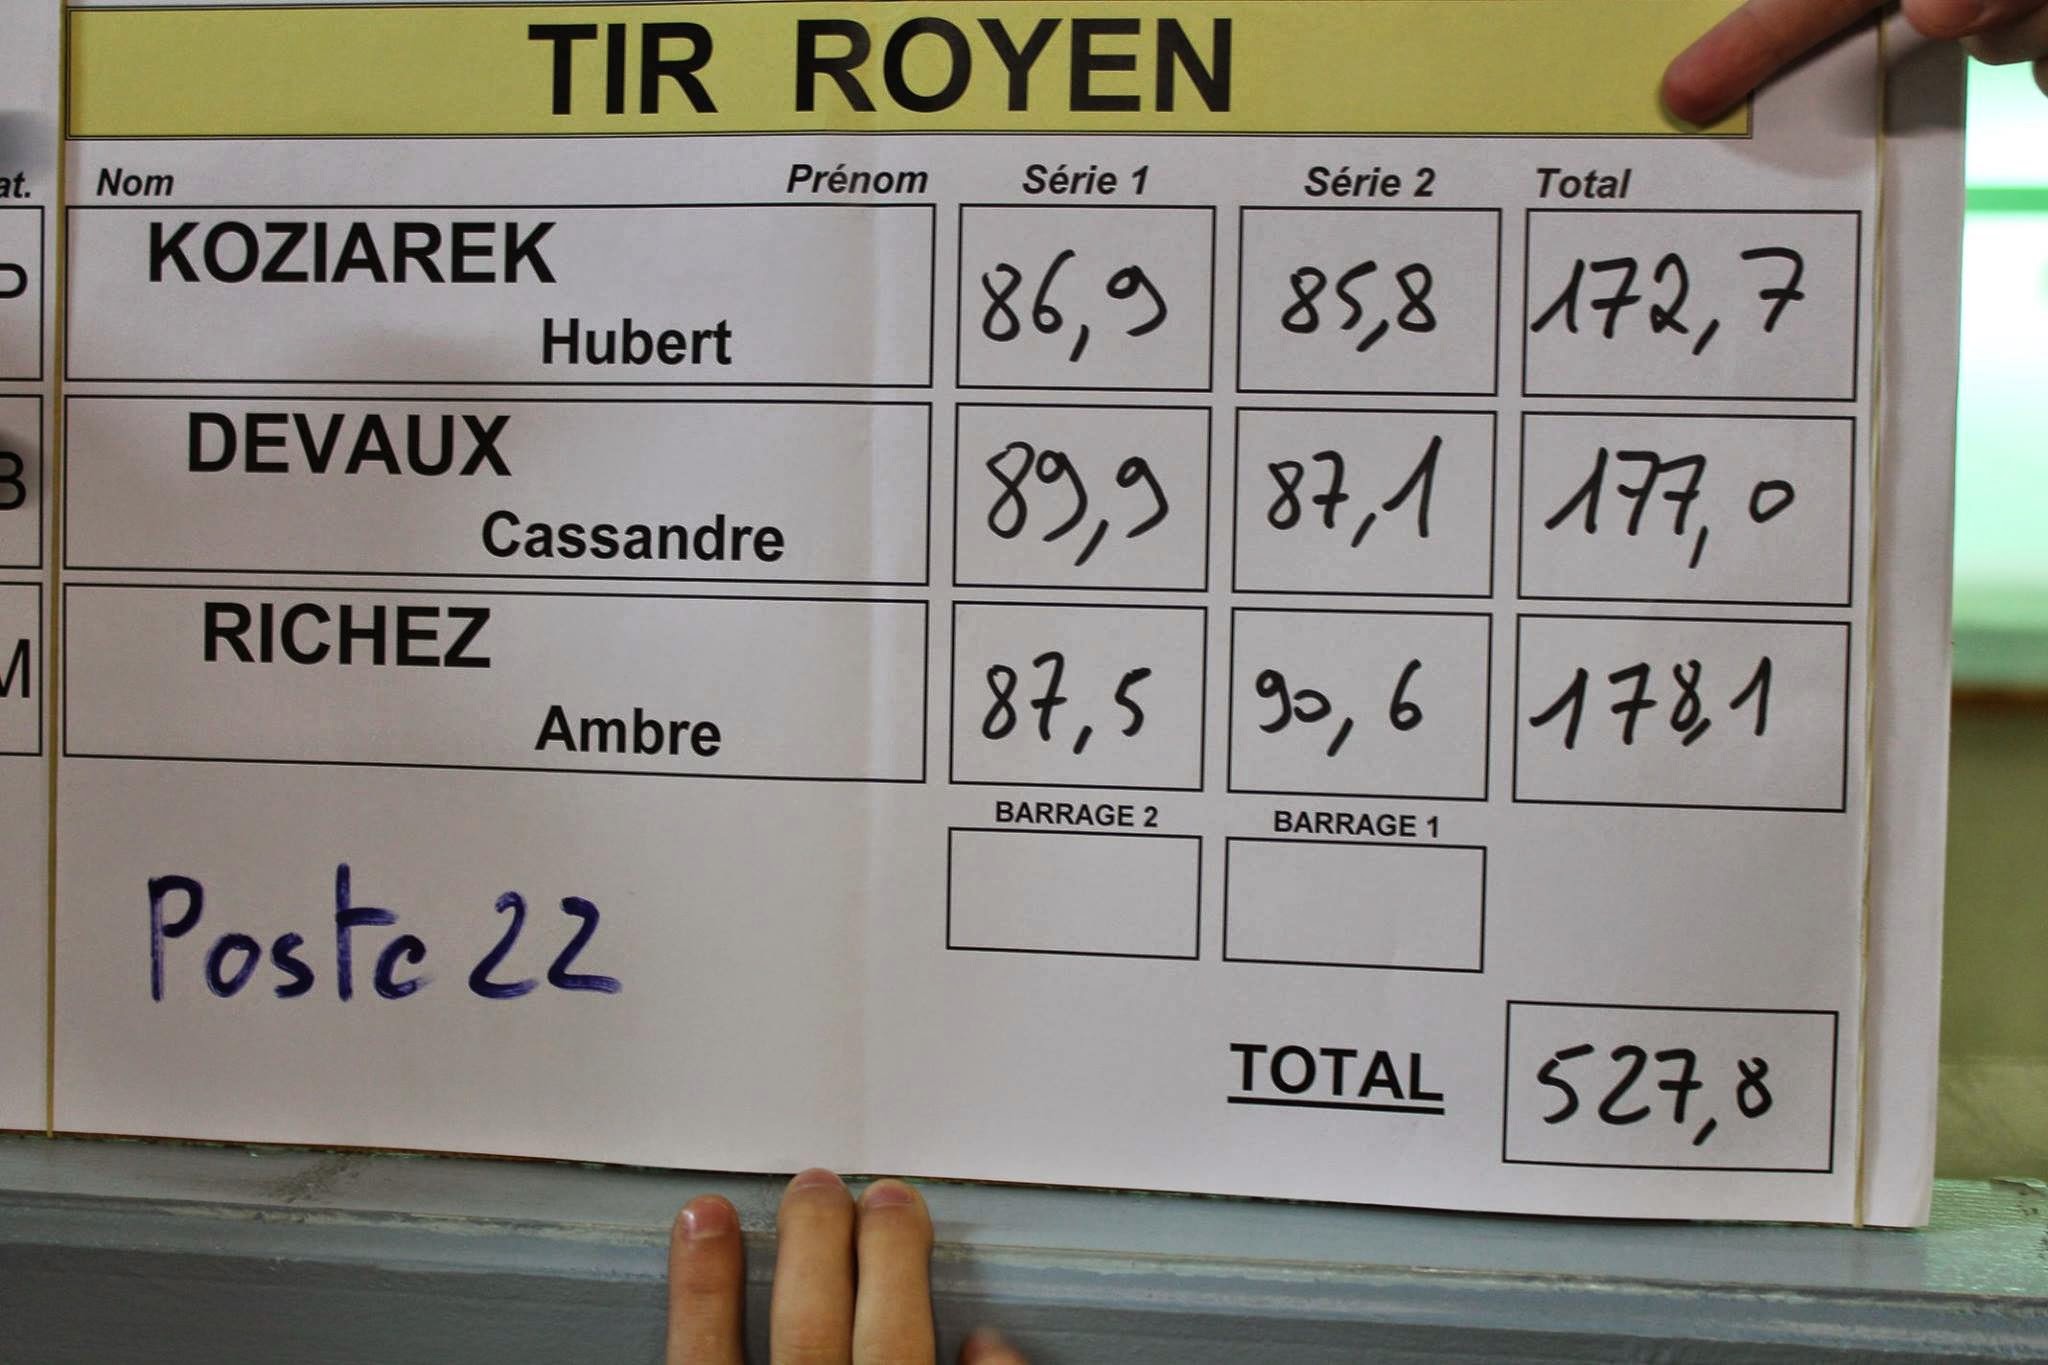 TIR ROYEN
at. Nom Prénom Série 1 Série 2 Total
P KOZIAREK Hubert 86,9 85,8 172,7
B DEVAUX Cassandre 89,9 87,1 177,0
M RICHEZ Ambre 87,5 90,6 178,1
BARRAGE 2 BARRAGE 1
Poste 22
TOTAL 527,8